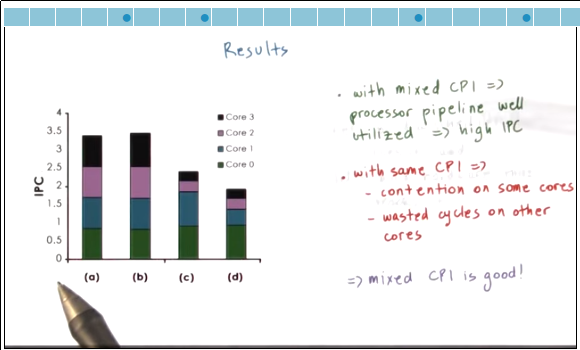 Results
4
3.5
3
2.5
2
1.5
1
0.5
0
IPC
Core 3
Core 2
Core 1
Core 0
(a) (b) (c) (d)
• with mixed CPI =>
processor pipeline well
utilized => high IPC
• with same CPI =>
- contention on some cores
- wasted cycles on other
cores
=> mixed CPI is good!